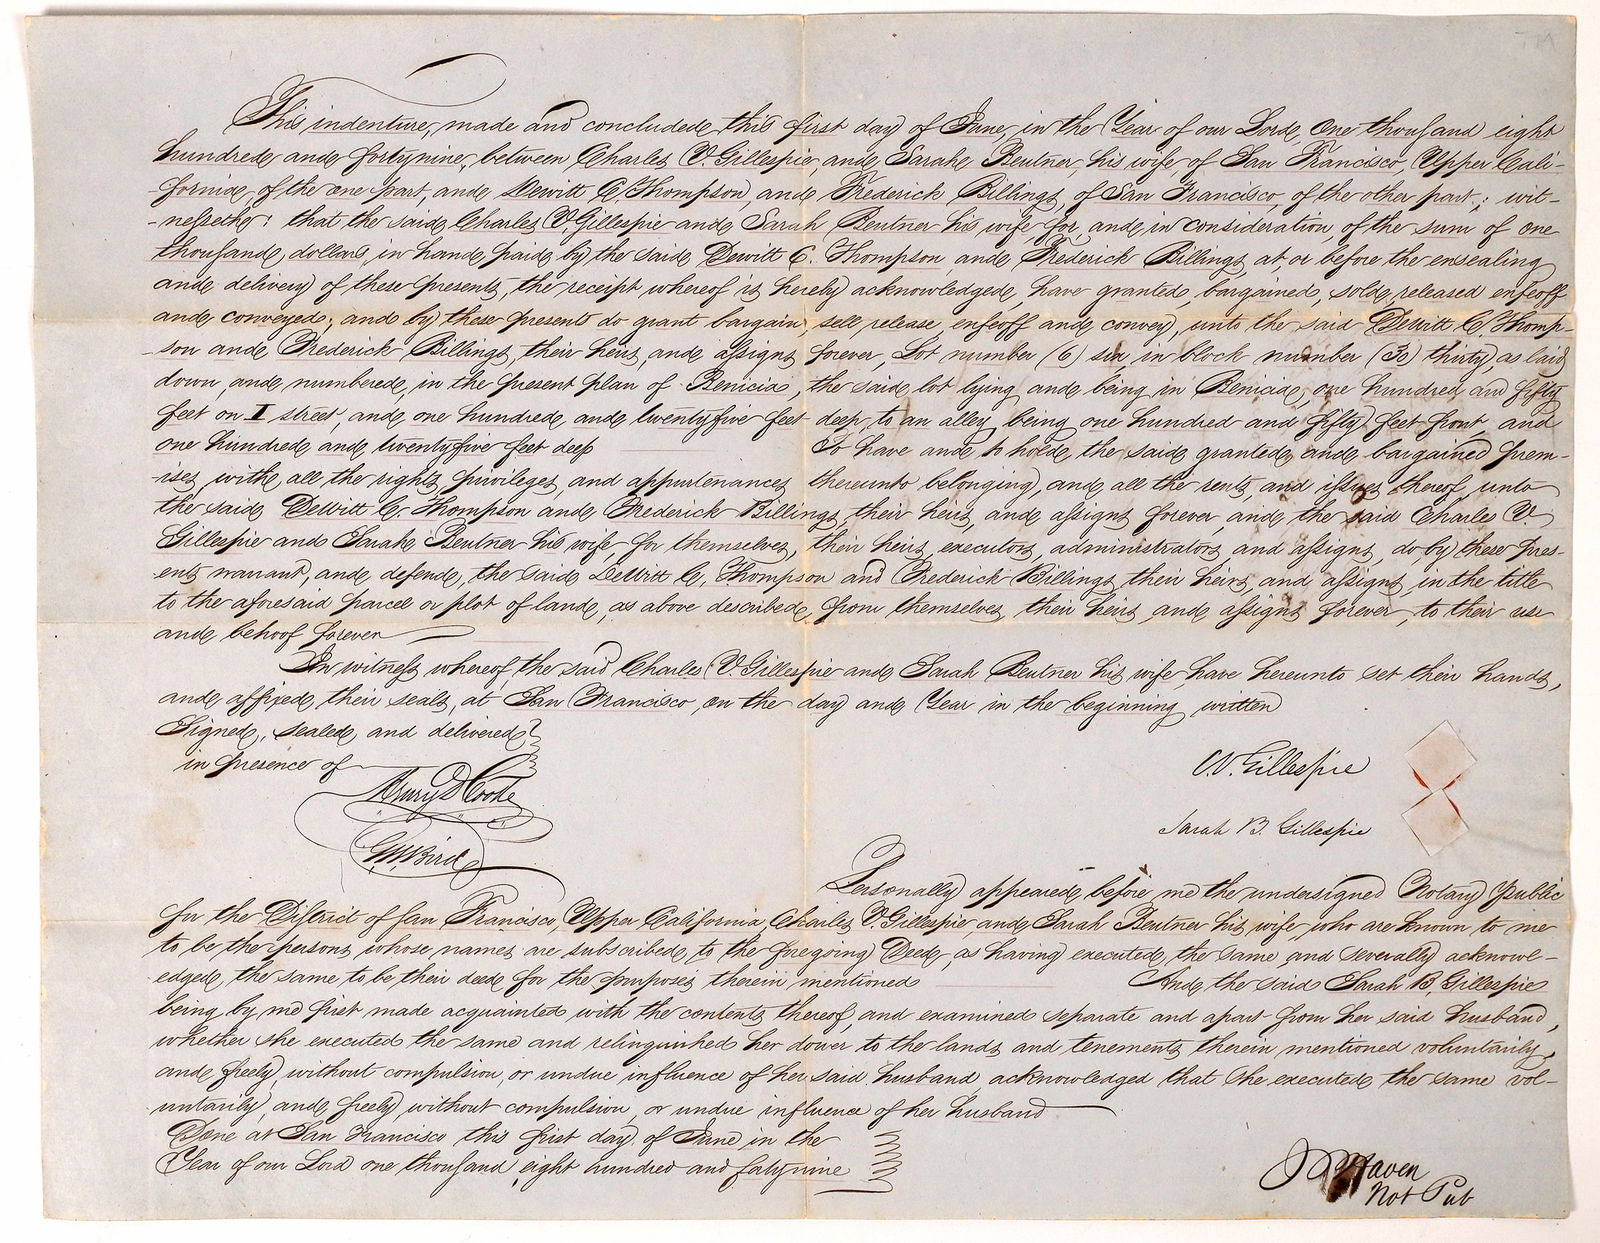 This indenture, made and concluded, this first day of June, in the Year of our Lord, One thousand eight
hundred and fortynine, between Charles V. Gillespie, and Sarah Beutner, his wife, of San Francisco, Upper Cali-
-fornia, of the one part, and Dewitt C. Thompson, and Frederick Billings, of San Francisco, of the other part; wit-
-nesseth: that the said Charles V. Gillespie and Sarah Beutner his wife, for, and, in consideration, of the sum of one
thousand, dollars, in hand, paid, by the said Dewitt C. Thompson and Frederick Billings, at, or before the ensealing
and delivery of these presents, the receipt whereof is hereby acknowledged, have granted, bargained, sold, released enfeoff
and conveyed; and by these presents do grant bargain, sell, release, enfeoff and convey, unto the said DeWitt C. Thomp-
-son and Frederick Billings their heirs, and assigns forever, Lot number (6) six, in block number (30) thirty, as laid
down, and numbered, in the present plan of Benicia, the said lot lying and being in Benicia, one hundred and fifty
feet on I street, and one hundred and twentyfive feet deep, to an alley, being one hundred and fifty feet front and
one hundred and twentyfive feet deep To have and to hold, the said granted, and bargained prem-
-ises, with all the rights, privileges, and appurtenances thereunto belonging, and all the rents, and issues thereof, unto
the said DeWitt C. Thompson and Frederick Billings, their heirs, and assigns forever and the said Charles V.
Gillespie and Sarah Beutner his wife for themselves, their heirs, executors, administrators, and assigns, do by these pres-
-ents warrant, and defend, the said DeWitt C. Thompson and Frederick Billings, their heirs, and assigns, in the title
to the aforesaid parcel or plot of land, as above described, from themselves, their heirs, and assigns forever, to their use
and behoof forever
In witness whereof the said Charles V. Gillespie and Sarah Beutner his wife have hereunto set their hands,
and affixed, their seals, at San Francisco, on the day and Year in the beginning written
Signed, sealed, and delivered
in presence of
C.V. Gillespie
Henry D Cooke
Sarah B. Gillespie
Bird
Personally appeared, before me the undersigned Notary Public
for the District of San Francisco, Upper California, Charles V. Gillespie and Sarah Beutner his wife, who are known to me
to be the persons, whose names are subscribed, to the foregoing Deed, as having executed, the same, and severally acknowl-
edged, the same to be their deed for the purposes therein mentioned And the said Sarah B. Gillespie
being by me first made acquainted with the contents thereof, and examined separate and apart from her said husband,
whether she executed the same and relinquished her dower to the lands and tenements therein mentioned voluntarily,
and freely, without compulsion, or undue influence of her said husband acknowledged that she executed the same vol-
untarily, and freely, without compulsion, or undue influence of her husband
Done at San Francisco this first day of June in the
Year of our Lord one thousand eight hundred and fortynine
Haven
Not Pub